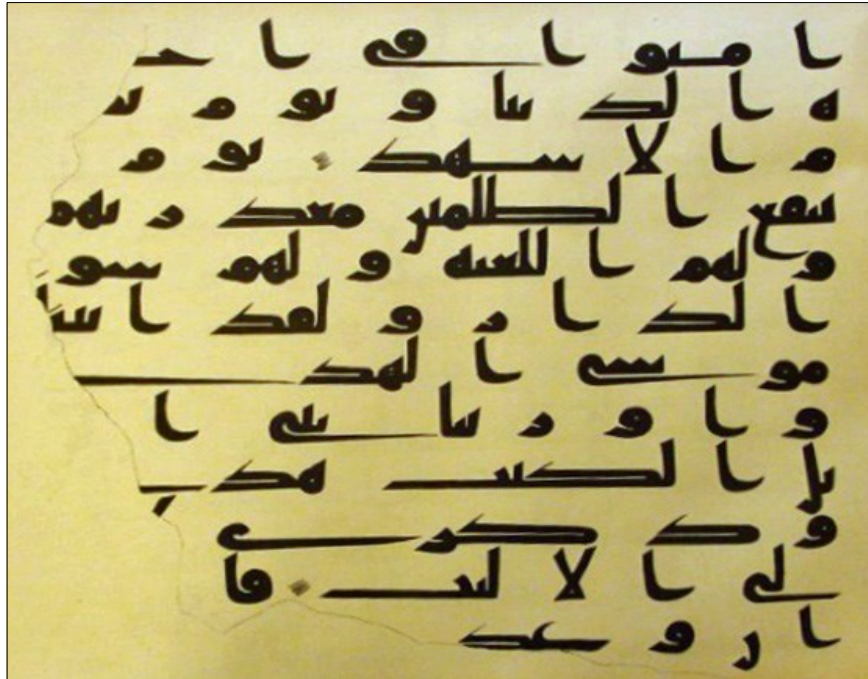 امنوا فى الحـ
ه الدنيا ويوم يـ
م الاشهد يوم
ينفع الظلمين معذرتهم
ولهم اللعنه ولهم سو
الدار ولقد اتينا
موسى الهدى
واورثنا بنى ا
يل الكتب هدى
وذكرى
لى الالبب فا
ان وعد